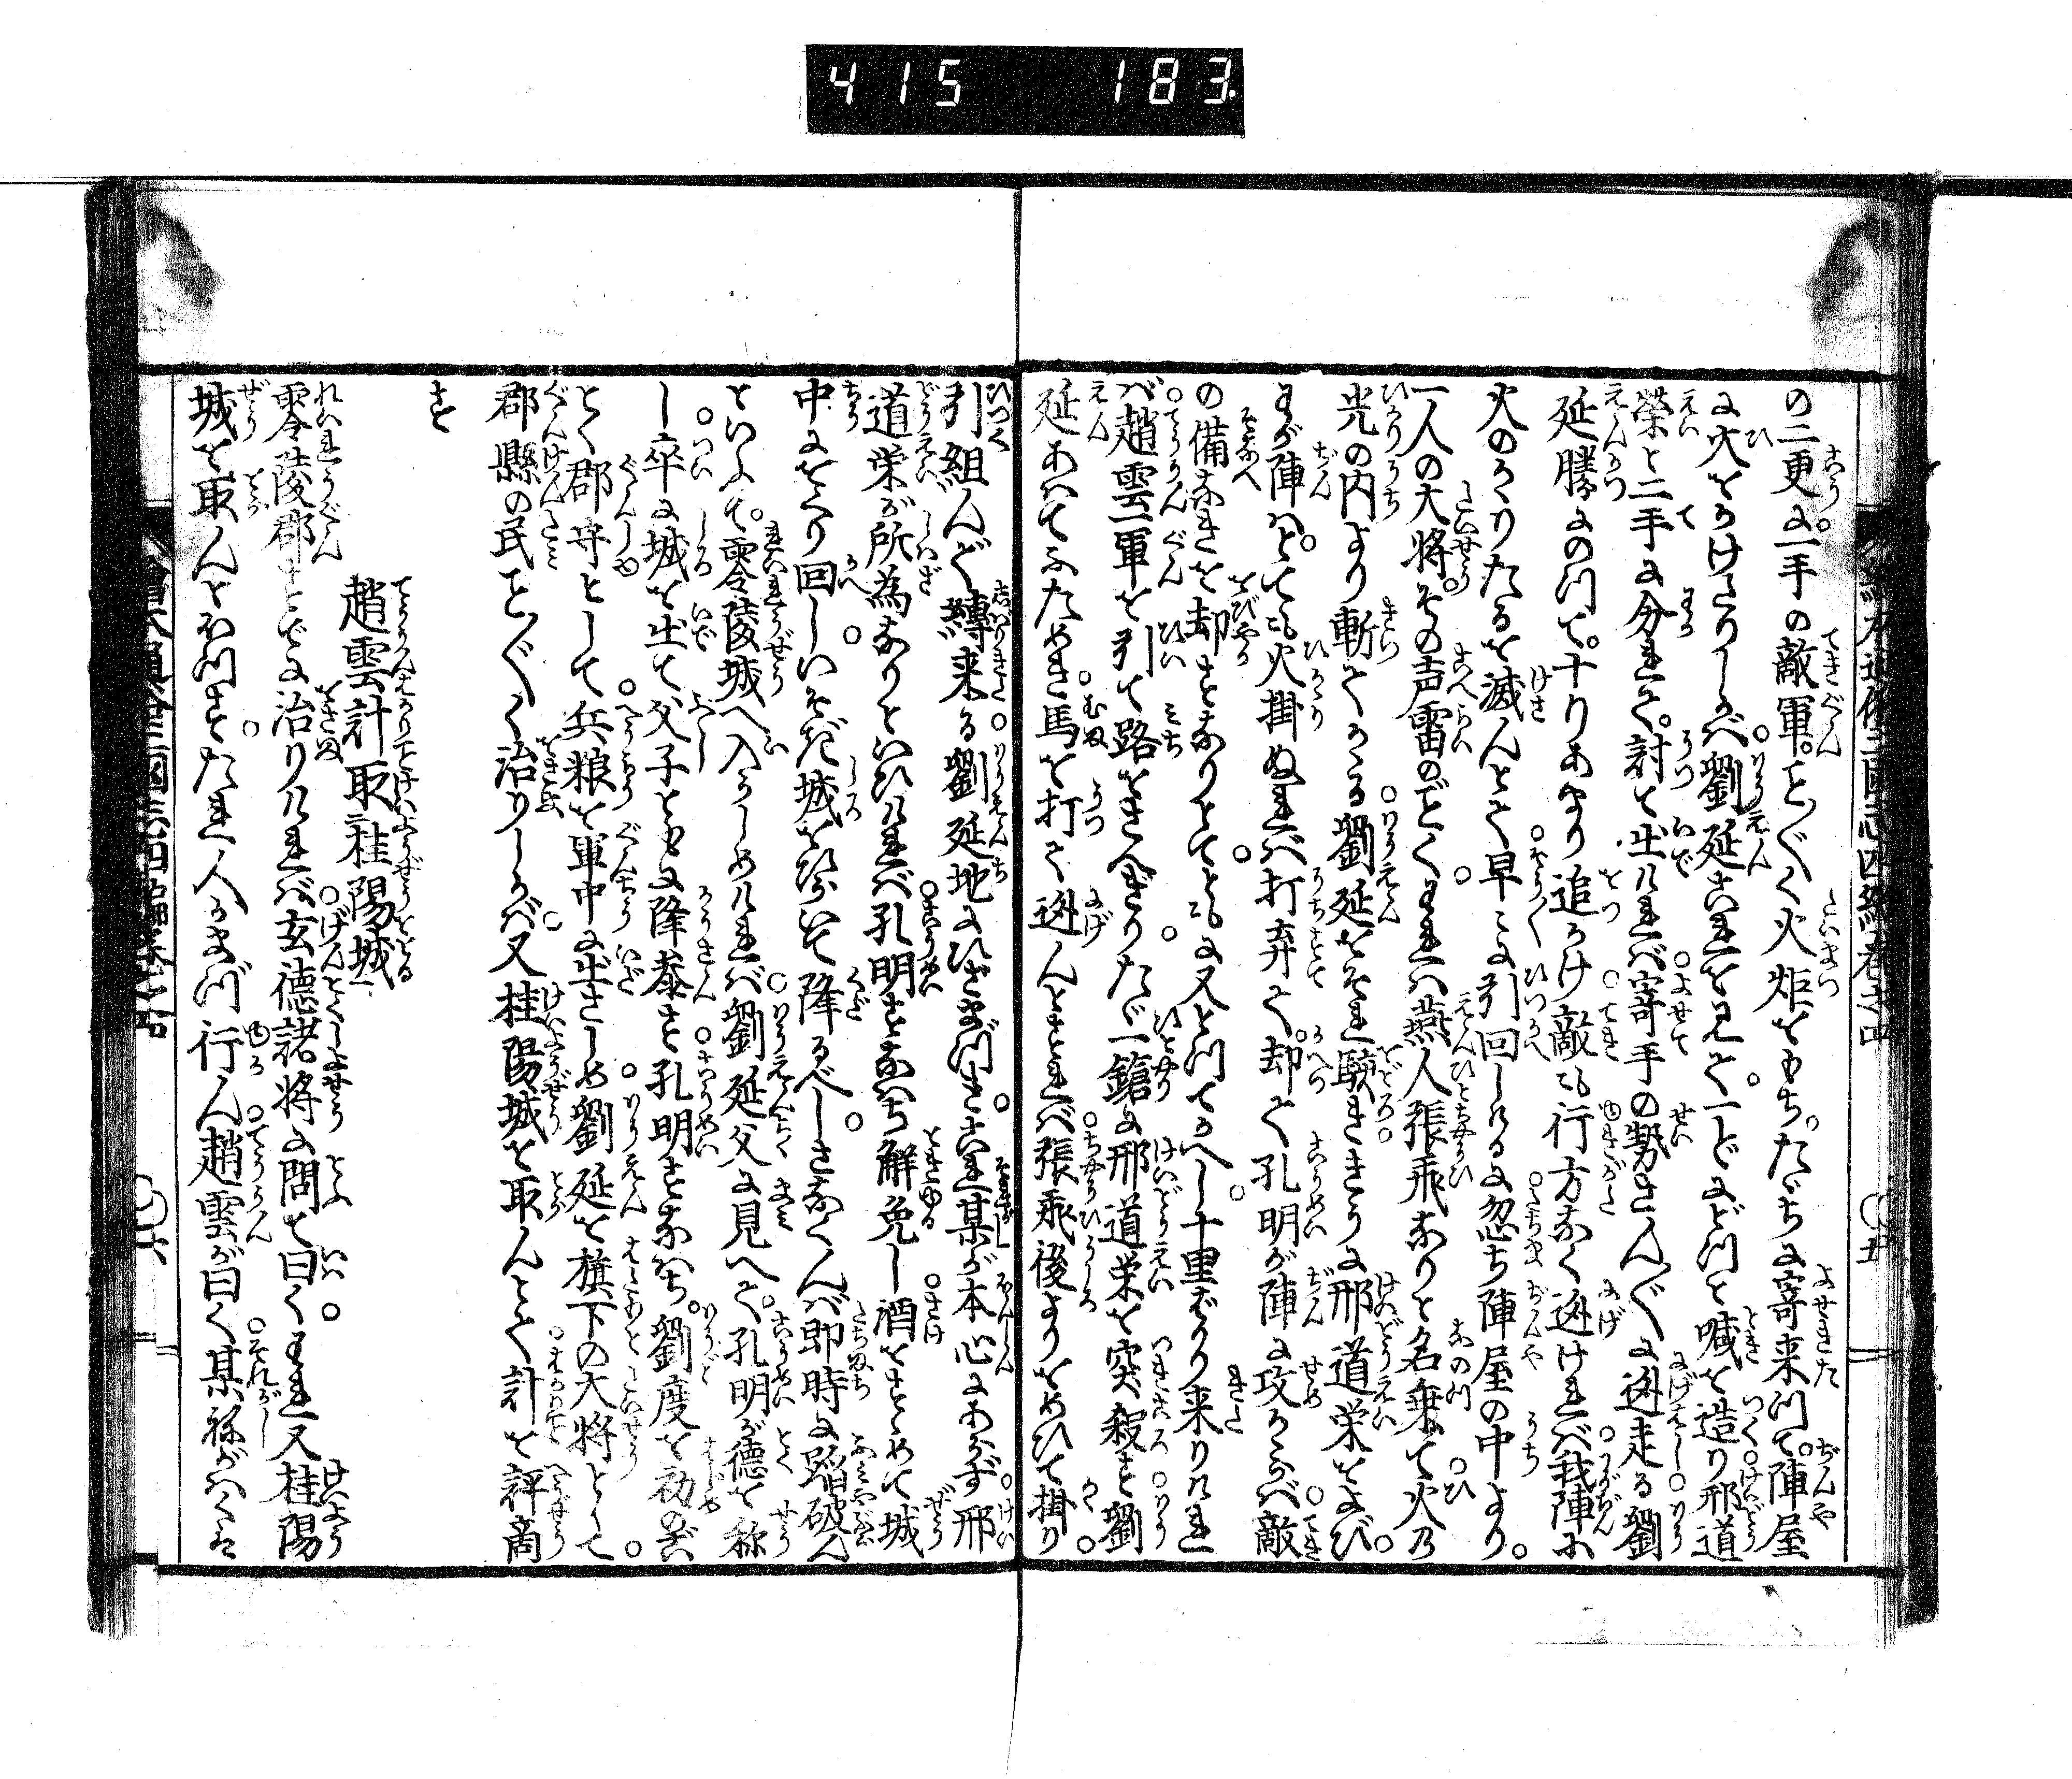 415 183
の二更に一手の敵軍。こと〴〵く火炬をもち。たゞちに寄来つて。陣屋
に火をかけたりしかば。劉延これを見て。一どにどつと喊を造り邢道
榮と二手に分れて。討て出ければ寄手の勢さん〴〵に迯走る劉
延勝にのつて。十里あまり追かけ敵も行方なく迯ければ我陣に
火のかゝりたるを滅んとて早々に引回しけるに忽ち陣屋の中より。
一人の大将。その声雷のごとく。われは燕人張飛なりと名乗て火の
光の内より斬てかゝる劉延おそれ驍きさうに邢道栄をよび。
わが陣はとても火掛ぬれば打弃て。却て孔明が陣に攻かゝらば敵
の備なきを却すなりとてともに又とつてかへし。十里ばかり来りければ
ば趙雲一軍を引て路をさへぎりたゞ一鎗に邢道栄を突殺す劉
延あはてふためき。馬を打て迯んとすれば張飛後よりをめひて掛り。
引組んで縛来る。劉延地にひざまづき。これ某が本心にあらず邢
道栄が所為なりといひければ孔明すなはち解免し酒をすゝめて城
中にをくり回し。いそぎ城をひらいて降るべし。さなくんば即時に蹈破ん
といふて。零陵城へ入らしめければ劉延父に見へて。孔明が徳を称
し卒に城を出て父子ともに降参す孔明すなはち。劉度を初のごと
とく郡守として。兵粮を軍中に出さしめ劉延を旗下の大将として。
郡縣の民こと〴〵く治りしかば。又桂陽城を取んとて計を評商
す
趙雲計取桂陽城
零陵郡すでに治りければ玄徳諸将に問て曰く。われ又桂陽
城を取んとほつす。たれ人かまづ行ん趙雲が曰く某祢がはくは